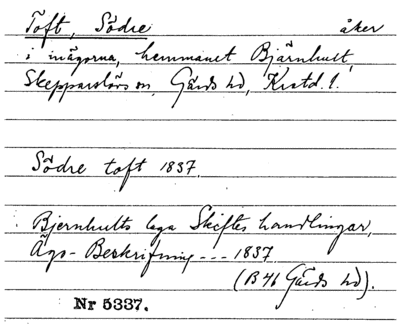 Toft, Södre åker
i inägorna, hemmanet Bjärnhult,
Skepparslövs sn, Gärds hd, Krstd. l.
Södre toft 1837.
Bjernhults laga Skiftes handlingar,
Ägo-Beskrifning --- 1837
(B 46 Gärds hd).
Nr 5337.